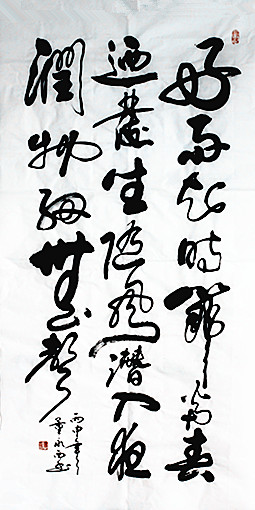 好雨知時節當春
迺發生隨風潛入夜
潤物細無聲
丙申年